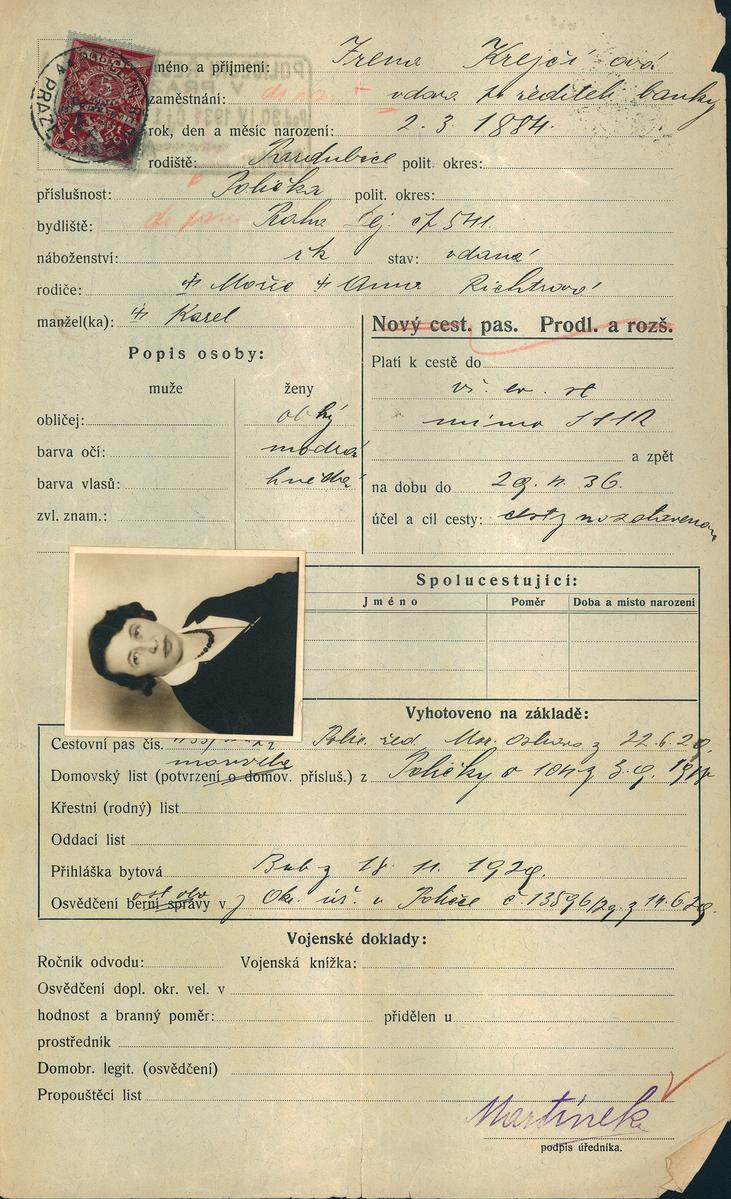 jméno a příjmení: Irena Krejčí ová
zaměstnání: vdova po řediteli banky
rok, den a měsíc narození: 2. 3. 1884.
rodiště: Pardubice polit. okres:
příslušnost: Polička polit. okres:
bydliště: Praha čp 541.
náboženství: řk stav: vdaná
rodiče: Anna Richtrová
manžel(ka): Karel
Nový cest. pas. Prodl. a rozš.
Popis osoby:
Platí k cestě do
muže ženy
vš. ev. st
obličej: oblý
mimo SSSR
barva očí: modrá
a zpět
barva vlasů: hnědé
na dobu do 36.
zvl. znam.:
účel a cíl cesty: cesty
Spolucestující:
Jméno Poměr Doba a místo narození
Vyhotoveno na základě:
Cestovní pas čís. Polic. řed. Mor. Ostrava z 22. 6. 29.
Domovský list (potvrzení o domov. přísluš.) z Poličky
Křestní (rodný) list
Oddací list
Přihláška bytová Bub z 18. 11. 1929.
Osvědčení berní správy v Okr. úř. v Poličce č 13596/29. z 14. 6. 29.
Vojenské doklady:
Ročník odvodu: Vojenská knížka:
Osvědčení dopl. okr. vel. v
hodnost a branný poměr: přidělen u
prostředník
Domobr. legit. (osvědčení)
Propouštěcí list
Martínek
podpis úředníka.